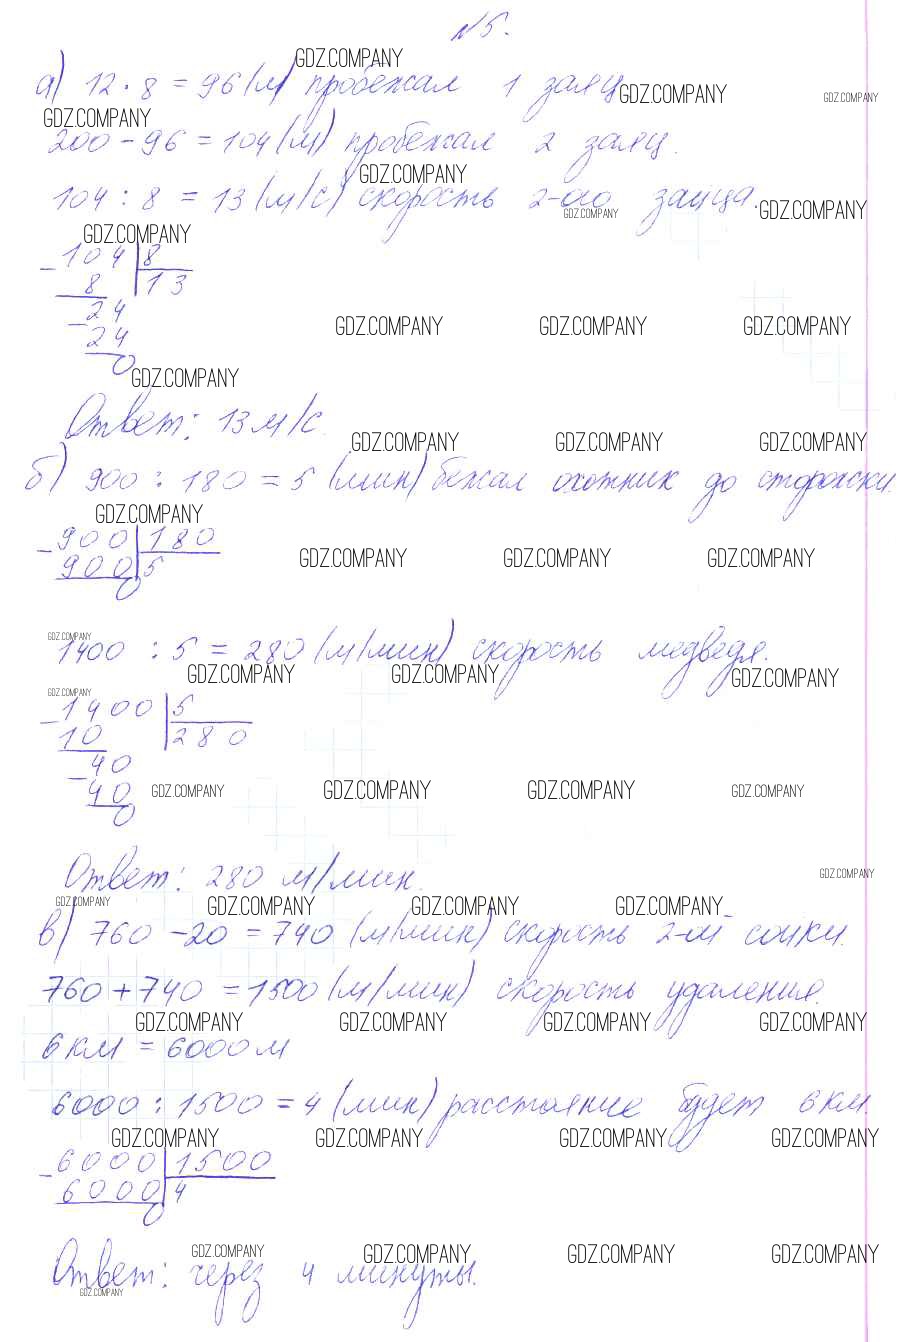 N5.
GDZ.COMPANY
а) 12 · 8 = 96 (м) пробежал 1 заяц
GDZ.COMPANY GDZ.COMPANY
GDZ.COMPANY
200 - 96 = 104 (м) пробежал 2 заяц.
GDZ.COMPANY
104 : 8 = 13 (м/с) скорость 2-ого зайца.
GDZ.COMPANY GDZ.COMPANY
GDZ.COMPANY
-104 | 8
8 | 13
-24
24
0
GDZ.COMPANY GDZ.COMPANY GDZ.COMPANY
GDZ.COMPANY
Ответ: 13 м/с.
GDZ.COMPANY GDZ.COMPANY GDZ.COMPANY
б) 900 : 180 = 5 (мин) бежал охотник до сторожки.
GDZ.COMPANY
-900 | 180
900 | 5
0
GDZ.COMPANY GDZ.COMPANY GDZ.COMPANY
GDZ.COMPANY
1400 : 5 = 280 (м/мин) скорость медведя.
GDZ.COMPANY GDZ.COMPANY GDZ.COMPANY
GDZ.COMPANY
-1400 | 5
10 | 280
-40
40
0
GDZ.COMPANY GDZ.COMPANY GDZ.COMPANY GDZ.COMPANY
Ответ: 280 м/мин.
GDZ.COMPANY
GDZ.COMPANY GDZ.COMPANY GDZ.COMPANY GDZ.COMPANY
в) 760 - 20 = 740 (м/мин) скорость 2-ой сойки.
760 + 740 = 1500 (м/мин) скорость удаления.
GDZ.COMPANY GDZ.COMPANY GDZ.COMPANY GDZ.COMPANY
6 км = 6000 м
6000 : 1500 = 4 (мин) расстояние будет 6 км.
GDZ.COMPANY GDZ.COMPANY GDZ.COMPANY GDZ.COMPANY
-6000 | 1500
6000 | 4
0
GDZ.COMPANY GDZ.COMPANY GDZ.COMPANY GDZ.COMPANY
Ответ: через 4 минуты.
GDZ.COMPANY